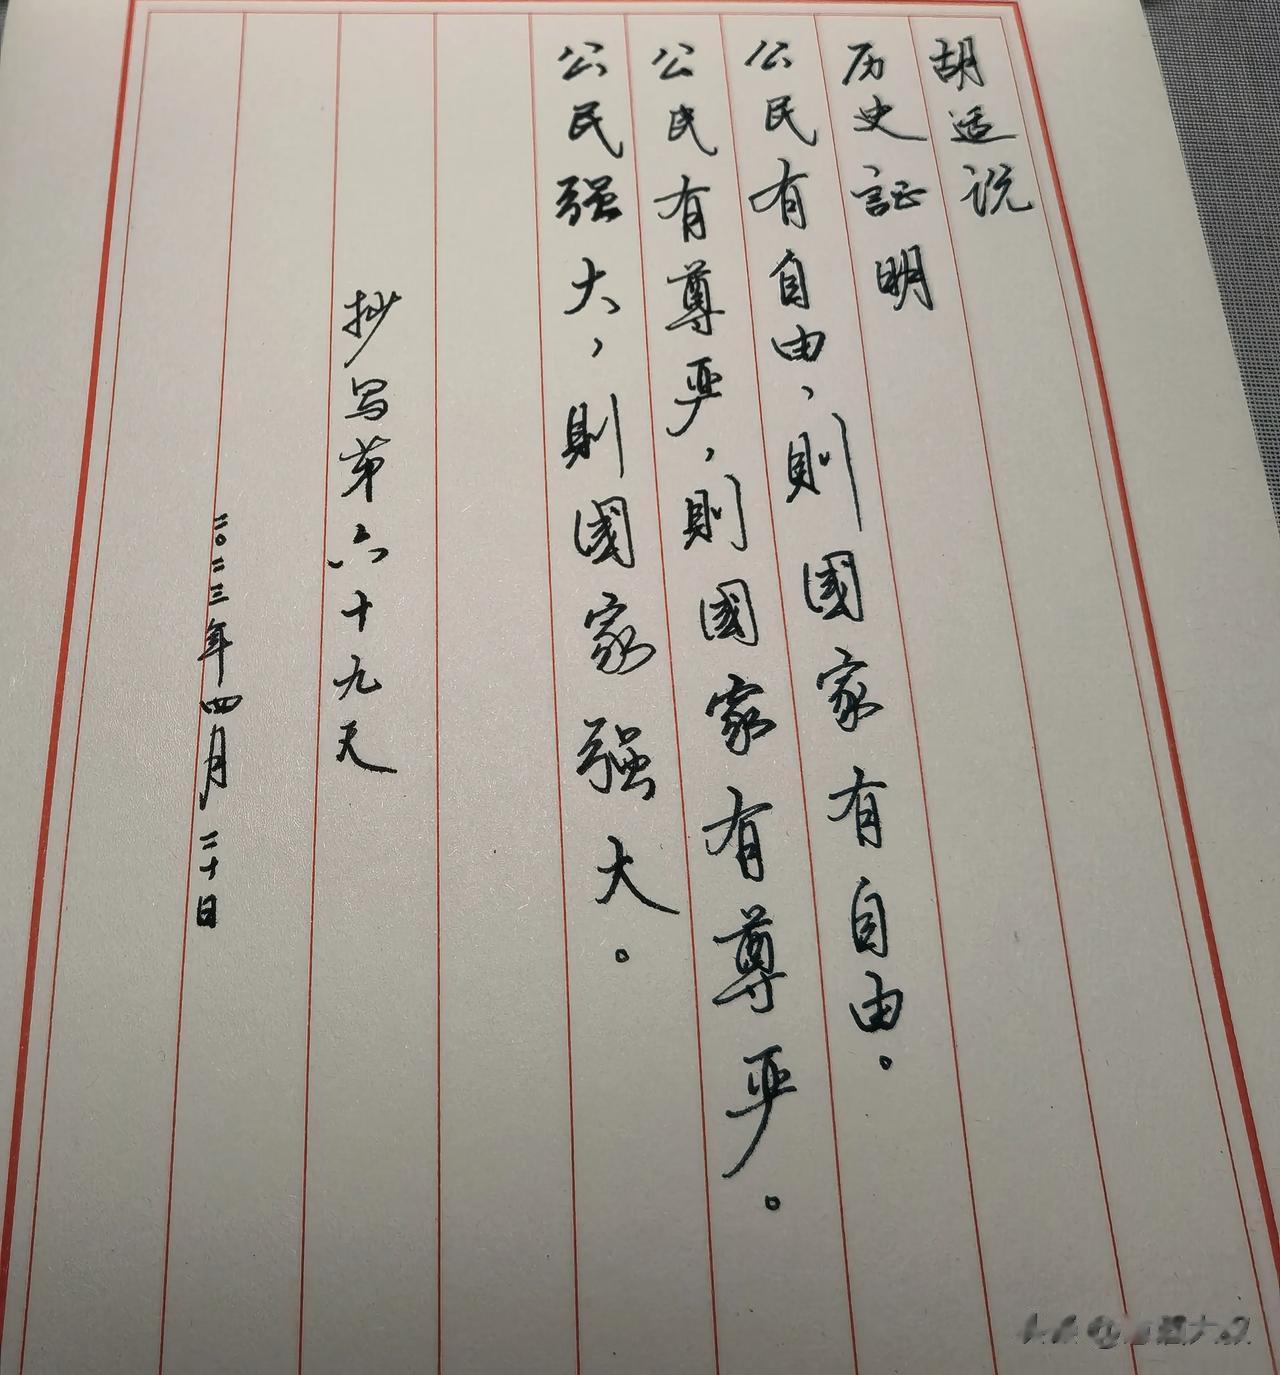 胡适说
历史証明
公民有自由，則國家有自由。
公民有尊严，則國家有尊严。
公民强大，則國家强大。
抄写第六十九天
二〇二三年四月二十日